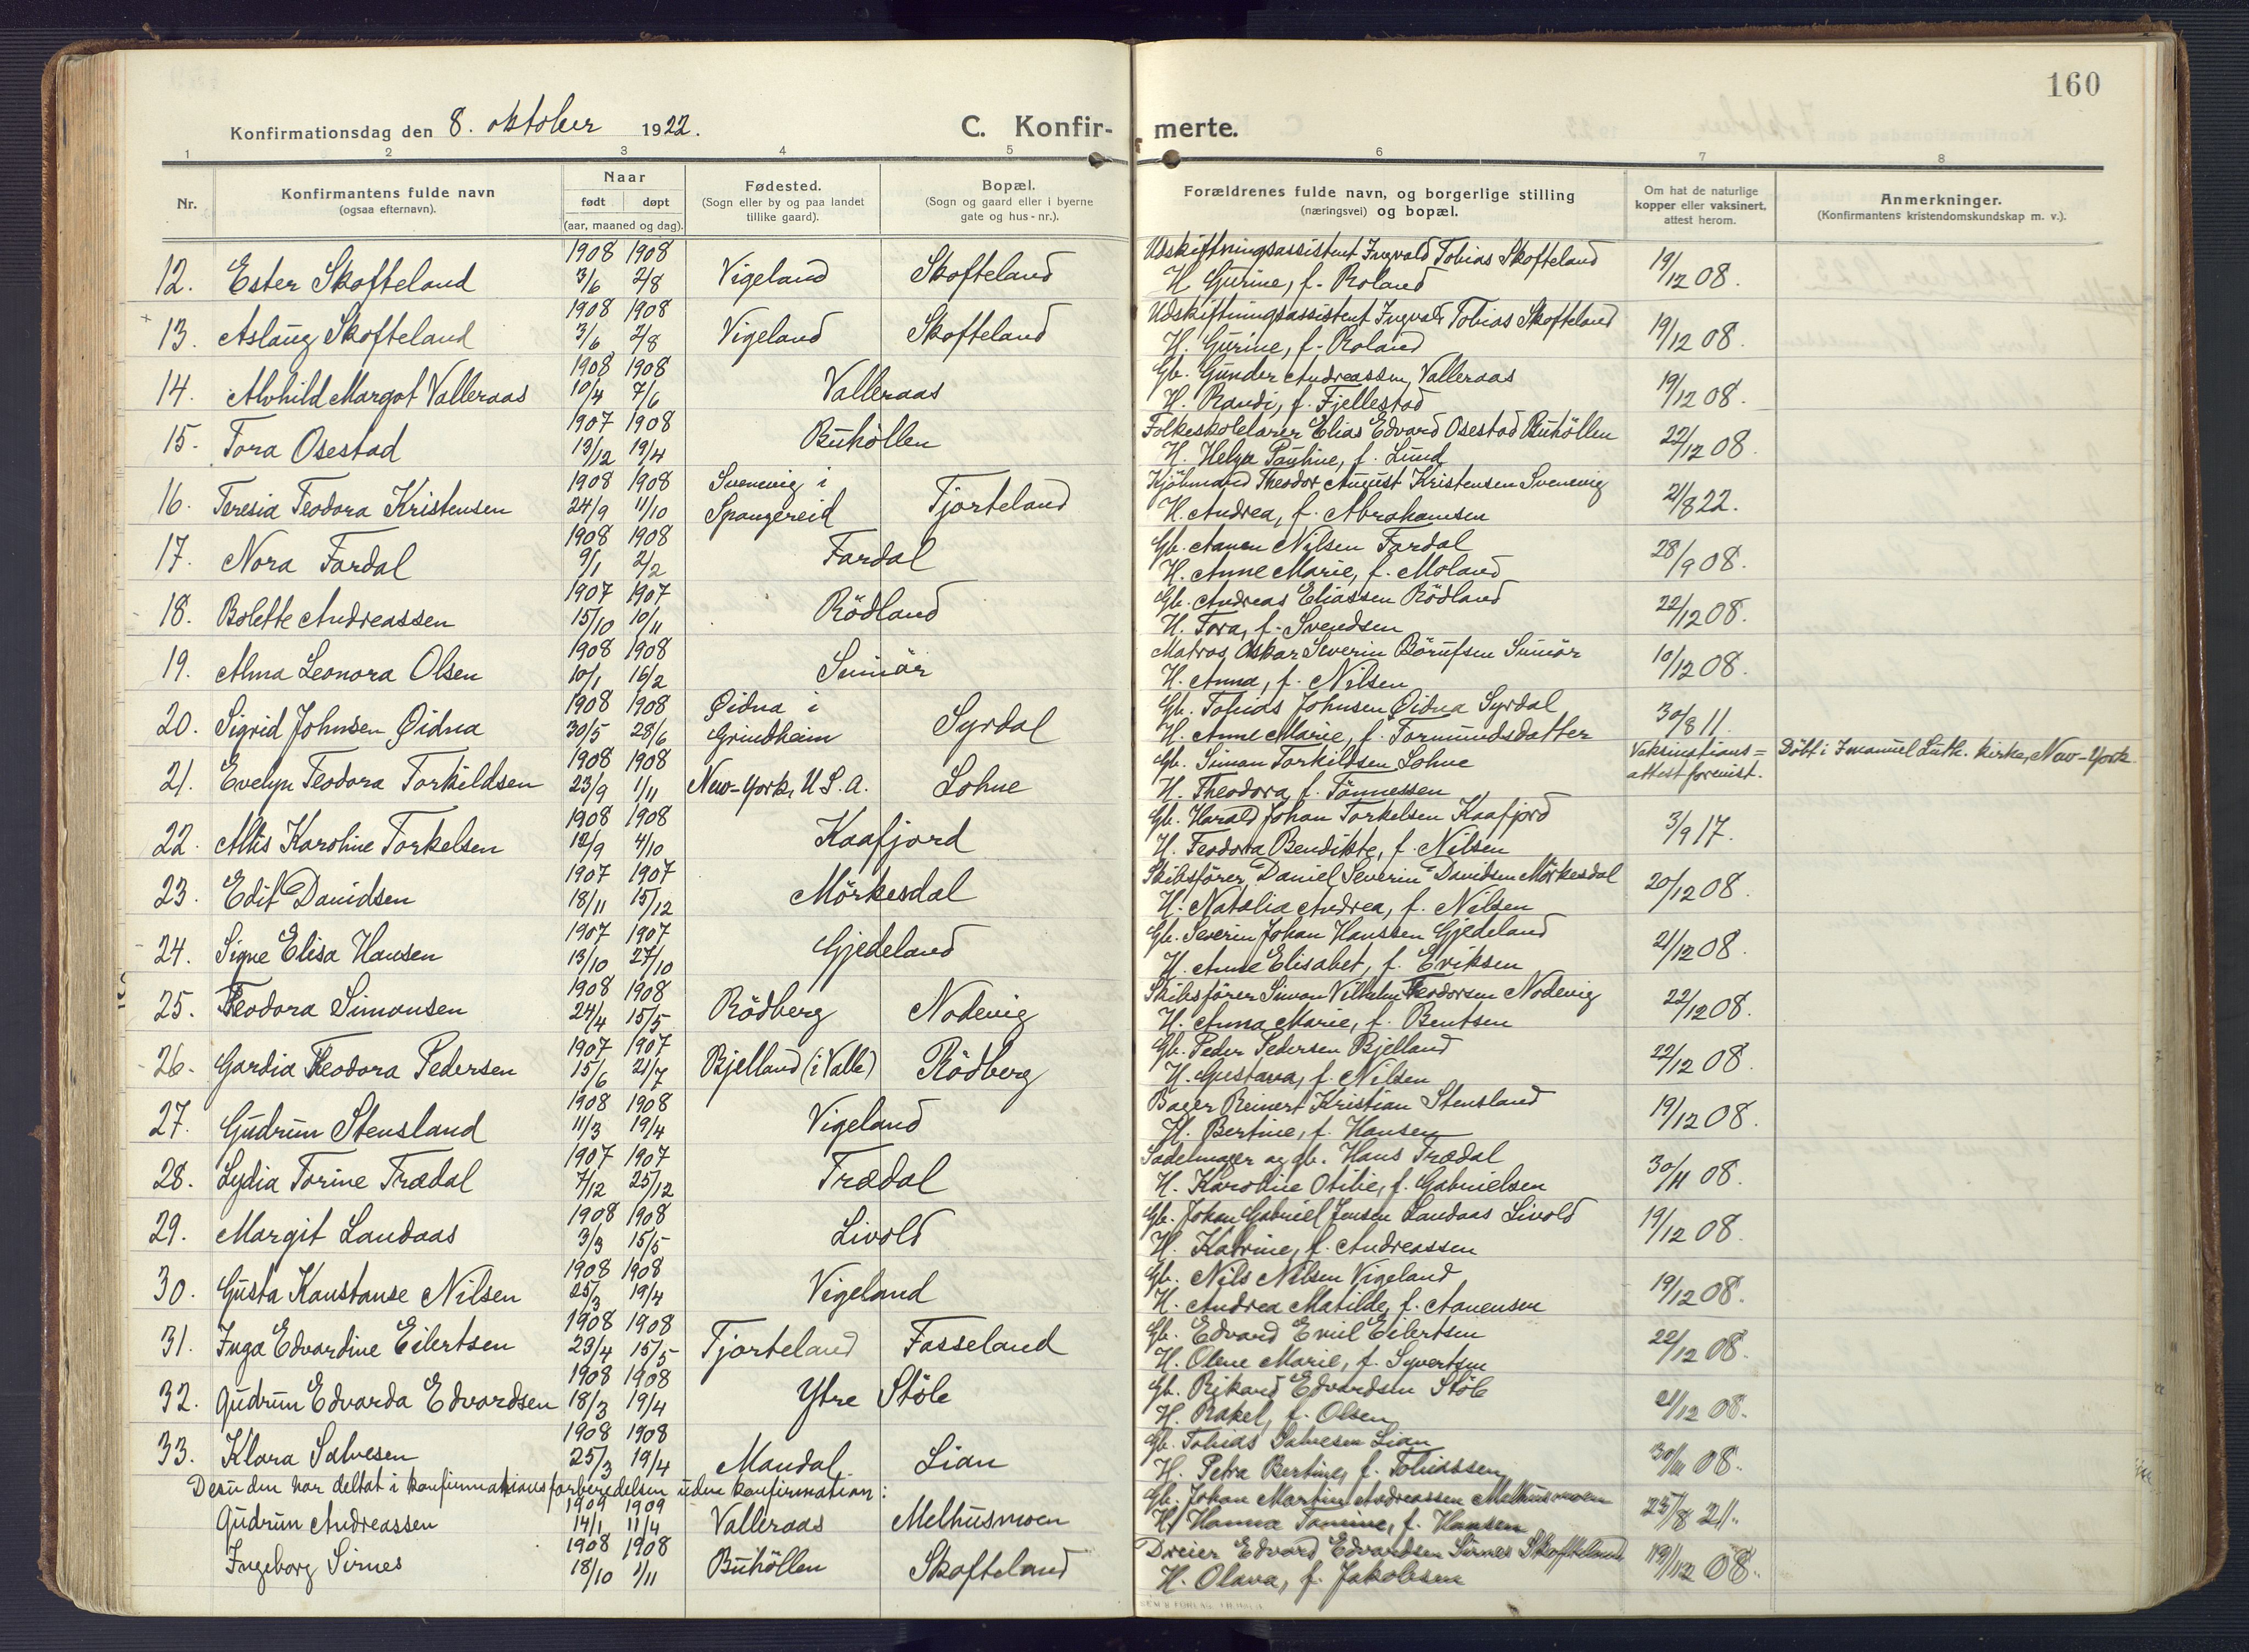 160
Konfirmationsdag den 8. oktober 1922.
C. Konfir- merte.
1 2 3 4 5 6 7 8
Nr.
Konfirmantens fulde navn
(ogsaa efternavn).
Naar
født døpt
(aar, maaned og dag).
Fødested.
(Sogn eller by og paa landet
tillike gaard).
Bopæl.
(Sogn og gaard eller i byerne
gate og hus-nr.).
Forældrenes fulde navn, og borgerlige stilling
(næringsvei) og bopæl.
Om hat de naturlige
kopper eller vaksinert,
attest herom.
Anmerkninger.
(Konfirmantens kristendomskundskap m. v.).
1908 1908 Udskiftningsassistent Ingvald Tobias Skofteland
12. Ester Skofteland 3/6 2/8 Vigeland Skofteland H. Gurine, f. Roland 19/12 08.
1908 1908 Udskiftningsassistent Ingvald Tobias Skofteland
13. Aslaug Skofteland 3/6 2/8 Vigeland Skofteland H. Gurine, f. Roland 19/12 08.
1908 1908 Gb. Gunder Andreassen Valleraas
14. Alvhild Margot Valleraas 10/4 7/6 Valleraas H. Randi, f. Fjellestad 19/12 08.
1907 1908 Folkeskolelærer Elias Edvard Osestad Buhöllen
15. Tora Osestad 13/12 19/4 Buhöllen H. Helga Pauline, f. Lund 22/12 08.
1908 1908 Svenevig i Kjöbmand Theodor August Kristensen Svenevig
16. Teresia Teodora Kristensen 24/9 11/10 Spangereid Tjorteland H. Andrea, f. Abrahamsen 21/8 22.
1908 1908 Gb. Aanen Nilsen Fardal
17. Nora Fardal 9/1 2/2 Fardal H. Anne Marie, f. Moland 28/9 08.
1907 1907 Gb. Andreas Eliassen Rödland
18. Bolette Andreassen 15/10 10/11 Rödland H. Tora, f. Svendsen 22/12 08.
1908 1908 Matros Oskar Severin Börufsen Sniör
19. Alma Leonora Olsen 10/1 16/2 H. Anna, f. Nilsen 10/12 08.
1908 1908 Øidna i Gb. Tobias Johnsen Øidna Syrdal
20. Sigrid Johnsen Øidna 30/5 28/6 Grindheim Syrdal H. Anne Marie, f. Tormundsdatter 30/8 11.
1908 1908 Gb. Simon Torkildsen Lohne Vaksinations= Döbt i Imanuel Luth. kirke, New-York
21. Evelyn Teodora Torkildsen 23/9 1/11 New-York, U.S.A. Lohne H. Theodora, f. Tönnessen attest forevist.
1908 1908 Gb. Harald Johan Torkelsen Kaafjord
22. Altis Karoline Torkelsen 12/9 4/10 Kaafjord H. Teodora Bendikte, f. Nilsen 3/9 17.
1907 1907 Skibsförer Daniel Severin Davidsen Mörkesdal
23. Edit Davidsen 18/11 15/12 Mörkesdal H. Natalia Andrea, f. Nilsen 20/12 08.
1907 1907 Gb. Severin Johan Hanssen Gjedeland
24. Signe Elisa Hansen 13/10 27/10 Gjedeland H. Anne Elisabet, f. Eriksen 21/12 08.
1908 1908 Skibsförer Simon Vilhelm Teodorsen Nodevig
25. Teodora Simonsen 24/4 15/5 Rödberg Nodevig H. Anna Marie, f. Bentsen 22/12 08.
1907 1907 Gb. Peder Pedersen Bjelland
26. Gardia Teodora Pedersen 15/6 21/7 Bjelland (i Valle) Rödberg H. Gustava, f. Nilsen 22/12 08.
1908 1908 Bager Reinert Kristian Stensland
27. Gudrun Stensland 11/3 19/4 Vigeland H. Bertine, f. Hansen 19/12 08.
1907 1907 Sadelmager og gb. Hans Trædal
28. Lydia Torine Trædal 7/12 25/12 Trædal H. Karoline Otilie, f. Gabrielsen 30/11 08.
1908 1908 Gb. Johan Gabriel Jensen Landaas Livold
29. Margit Landaas 3/3 15/5 Livold H. Katrine, f. Andreassen 19/12 08.
1908 1908 Gb. Nils Nilsen Vigeland
30. Gusta Konstanse Nilsen 25/3 19/4 Vigeland H. Andrea Matilde, f. Aanensen 19/12 08.
1908 1908 Gb. Edvard Emil Eilertsen
31. Inga Edvardine Eilertsen 23/4 15/5 Tjorteland Fasseland H. Olene Marie, f. Syvertsen 22/12 08.
1908 1908 Gb. Rikard Edvardsen Stöle
32. Gudrun Edvarda Edvardsen 18/3 19/4 Ytre Stöle H. Rakel, f. Olsen 21/12 08.
1908 1908 Gb. Tobias Salvesen Lian
33. Klara Salvesen 25/3 19/4 Mandal Lian H. Petra Bertine, f. Tobiassen 30/11 08.
Desuden har deltat i konfirmationsforberedelsen uden konfirmation:
1909 1909 Gb. Johan Martin Andreassen Melhusmoen
Gudrun Andreassen 14/1 11/4 Valleraas Melhusmoen H. Hanna Tomine, f. Hansen 25/8 21.
1908 1908 Dreier Edvard Edvardsen Sirnes Skofteland
Ingeborg Sirnes 18/10 1/11 Buhöllen Skofteland H. Olava, f. Jakobsen 19/12 08.